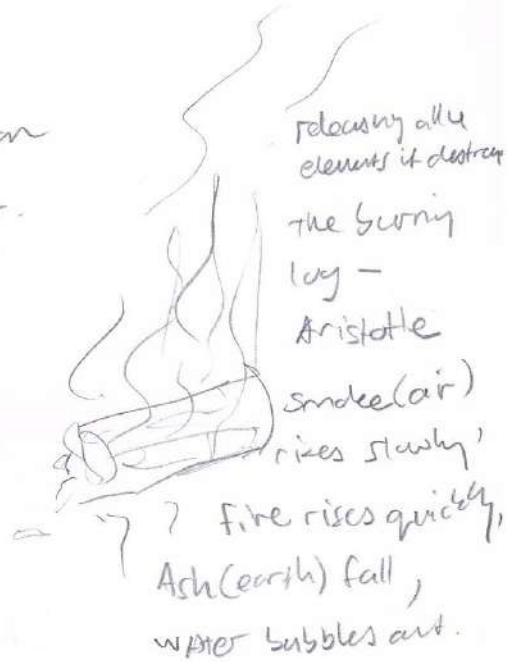 releasing all 4
elements it destroys
the burning
log —
Aristotle
smoke (air)
rises slowly,
fire rises quickly,
Ash (earth) fall,
water bubbles out.